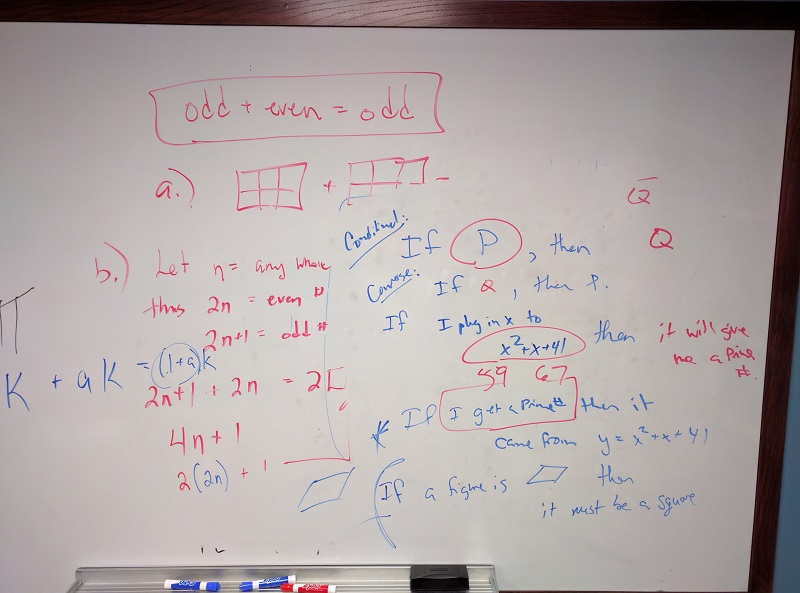 odd + even = odd
a.) + -
Q
Q
b.) Let n = any whole
thus 2n = even #
2n+1 = odd #
K + aK = (1+a)K
2n+1 + 2n = 2
4n+1
2(2n) + 1
If P, then
Converse: If Q, then P.
If I plug in x to
x²+x+41 then it will give
me a prime
#.
59 67
* If I get a prime # then it
came from y = x²+x+41
If a figure is then
it must be a square